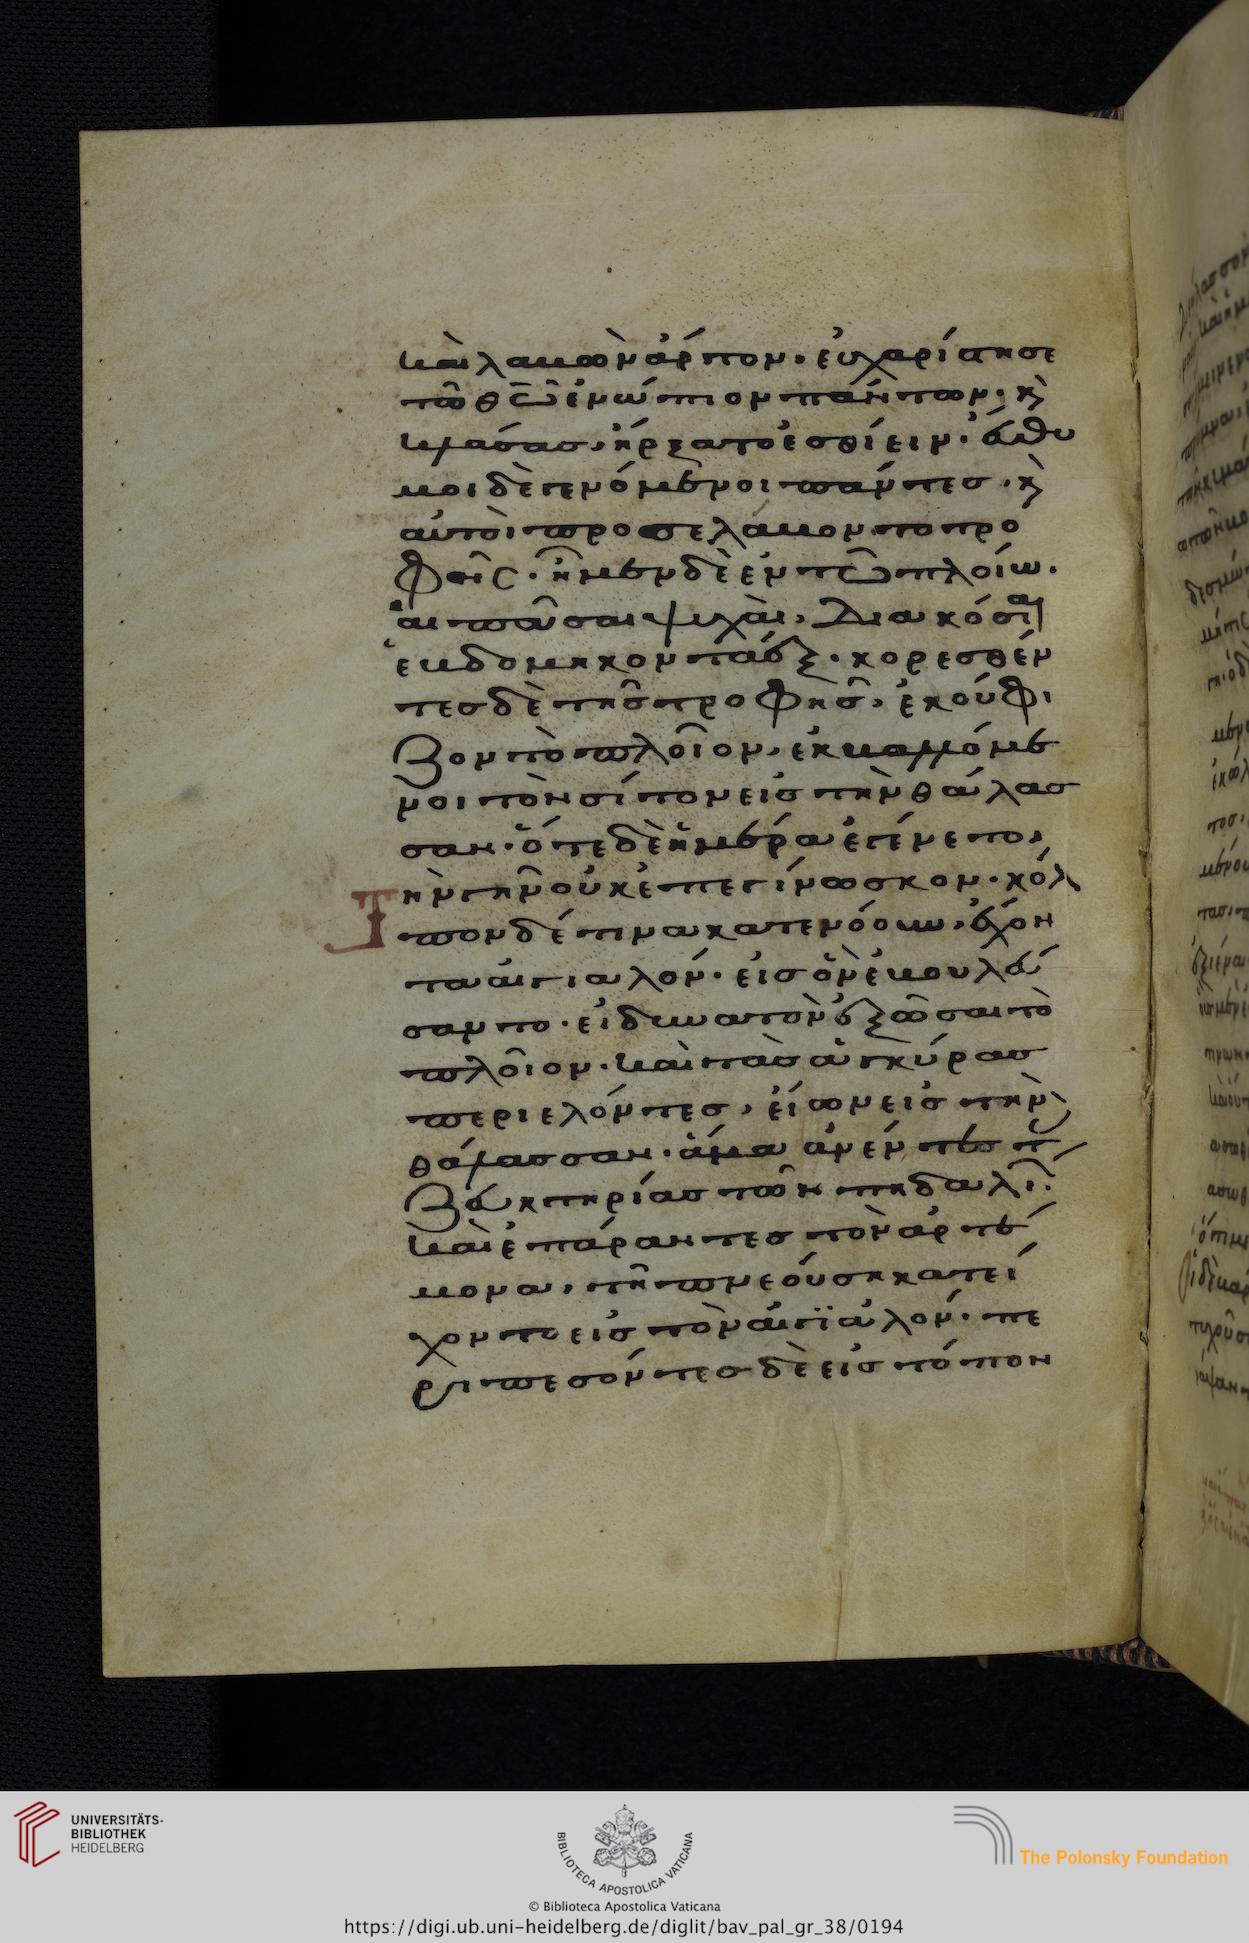 καὶ λαβὼν ἄρτον· εὐχαρίστησε
τῶ θῶ ἐνώπιον πάντων· κ(αὶ)
κλάσας, ἤρξατο ἐσθίειν· εὔθυ
μοι δὲ γενόμενοι πάντες· κ(αὶ)
αὐτοὶ προσελάβον το τρο
φῆς· ἦμεν δὲ ἐν τῶ πλοίω·
αἱ πᾶσαι ψυχαὶ, διακόσιαι
ἑβδομηκονταέξ· κορεσθέν
τες δὲ τῆς τροφῆς, ἐκούφι
ζον τὸ πλοῖον, ἐκβαλλόμε
νοι τὸν σίτον εἰς τὴν θάλασ
σαν· ὅτε δὲ ἡμέρα ἐγένετο,
Τὴν γῆν οὐκ ἐπεγίνωσκον· κόλ
πον δέ τινα κατενόουν, ἔχον
τα αἰγιαλόν· εἰς ὃν ἐβουλεύ
σαντο· εἰ δυνατὸν ἐξῶσαι τὸ
πλοῖον· καὶ τὰς ἀγκύρας
περιελόντες, εἴων εἰς τὴν
θάλασσαν· ἅμα ἀνέντες τ(ὰς)
ζευκτηρίας τῶν πηδαλί(ων)·
καὶ ἐπάραντες τὸν ἀρτέ
μονα, τῆ πνεούση κατεί
χον το εἰς τὸν αἰγϊαλόν· πε
ριπεσόντες δὲ εἰς τόπον
UNIVERSITÄTS-
BIBLIOTHEK
HEIDELBERG
BIBLIOTECA APOSTOLICA VATICANA
The Polonsky Foundation
© Biblioteca Apostolica Vaticana
https://digi.ub.uni-heidelberg.de/diglit/bav_pal_gr_38/0194